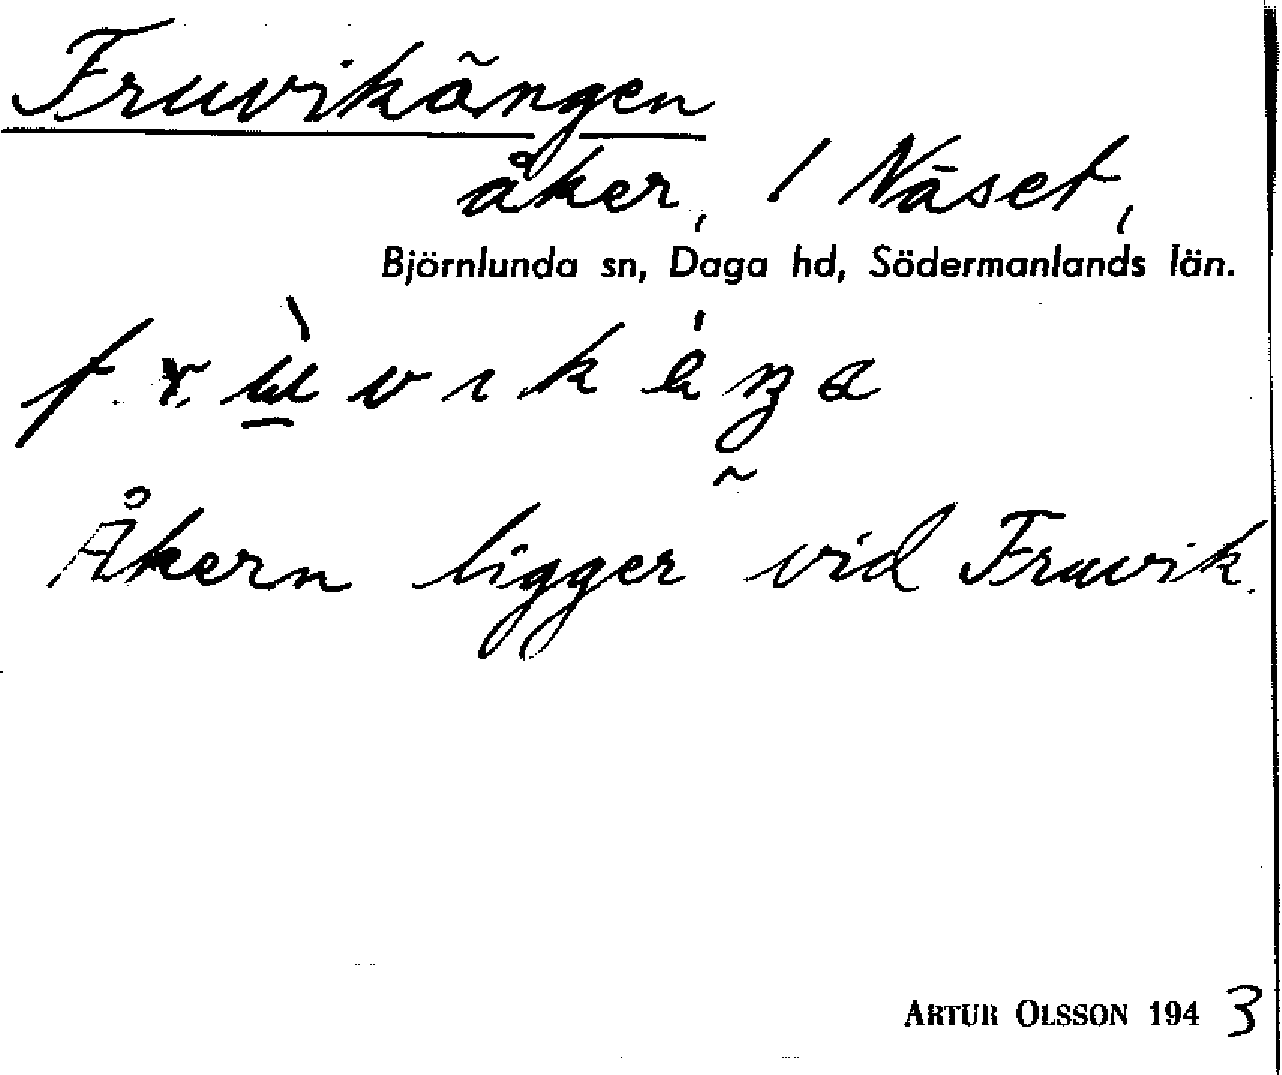 Fruvikängen
åker, / Näset,
Björnlunda sn, Daga hd, Södermanlands län.
Åkern ligger vid Fruvik.
ARTUR OLSSON 1943